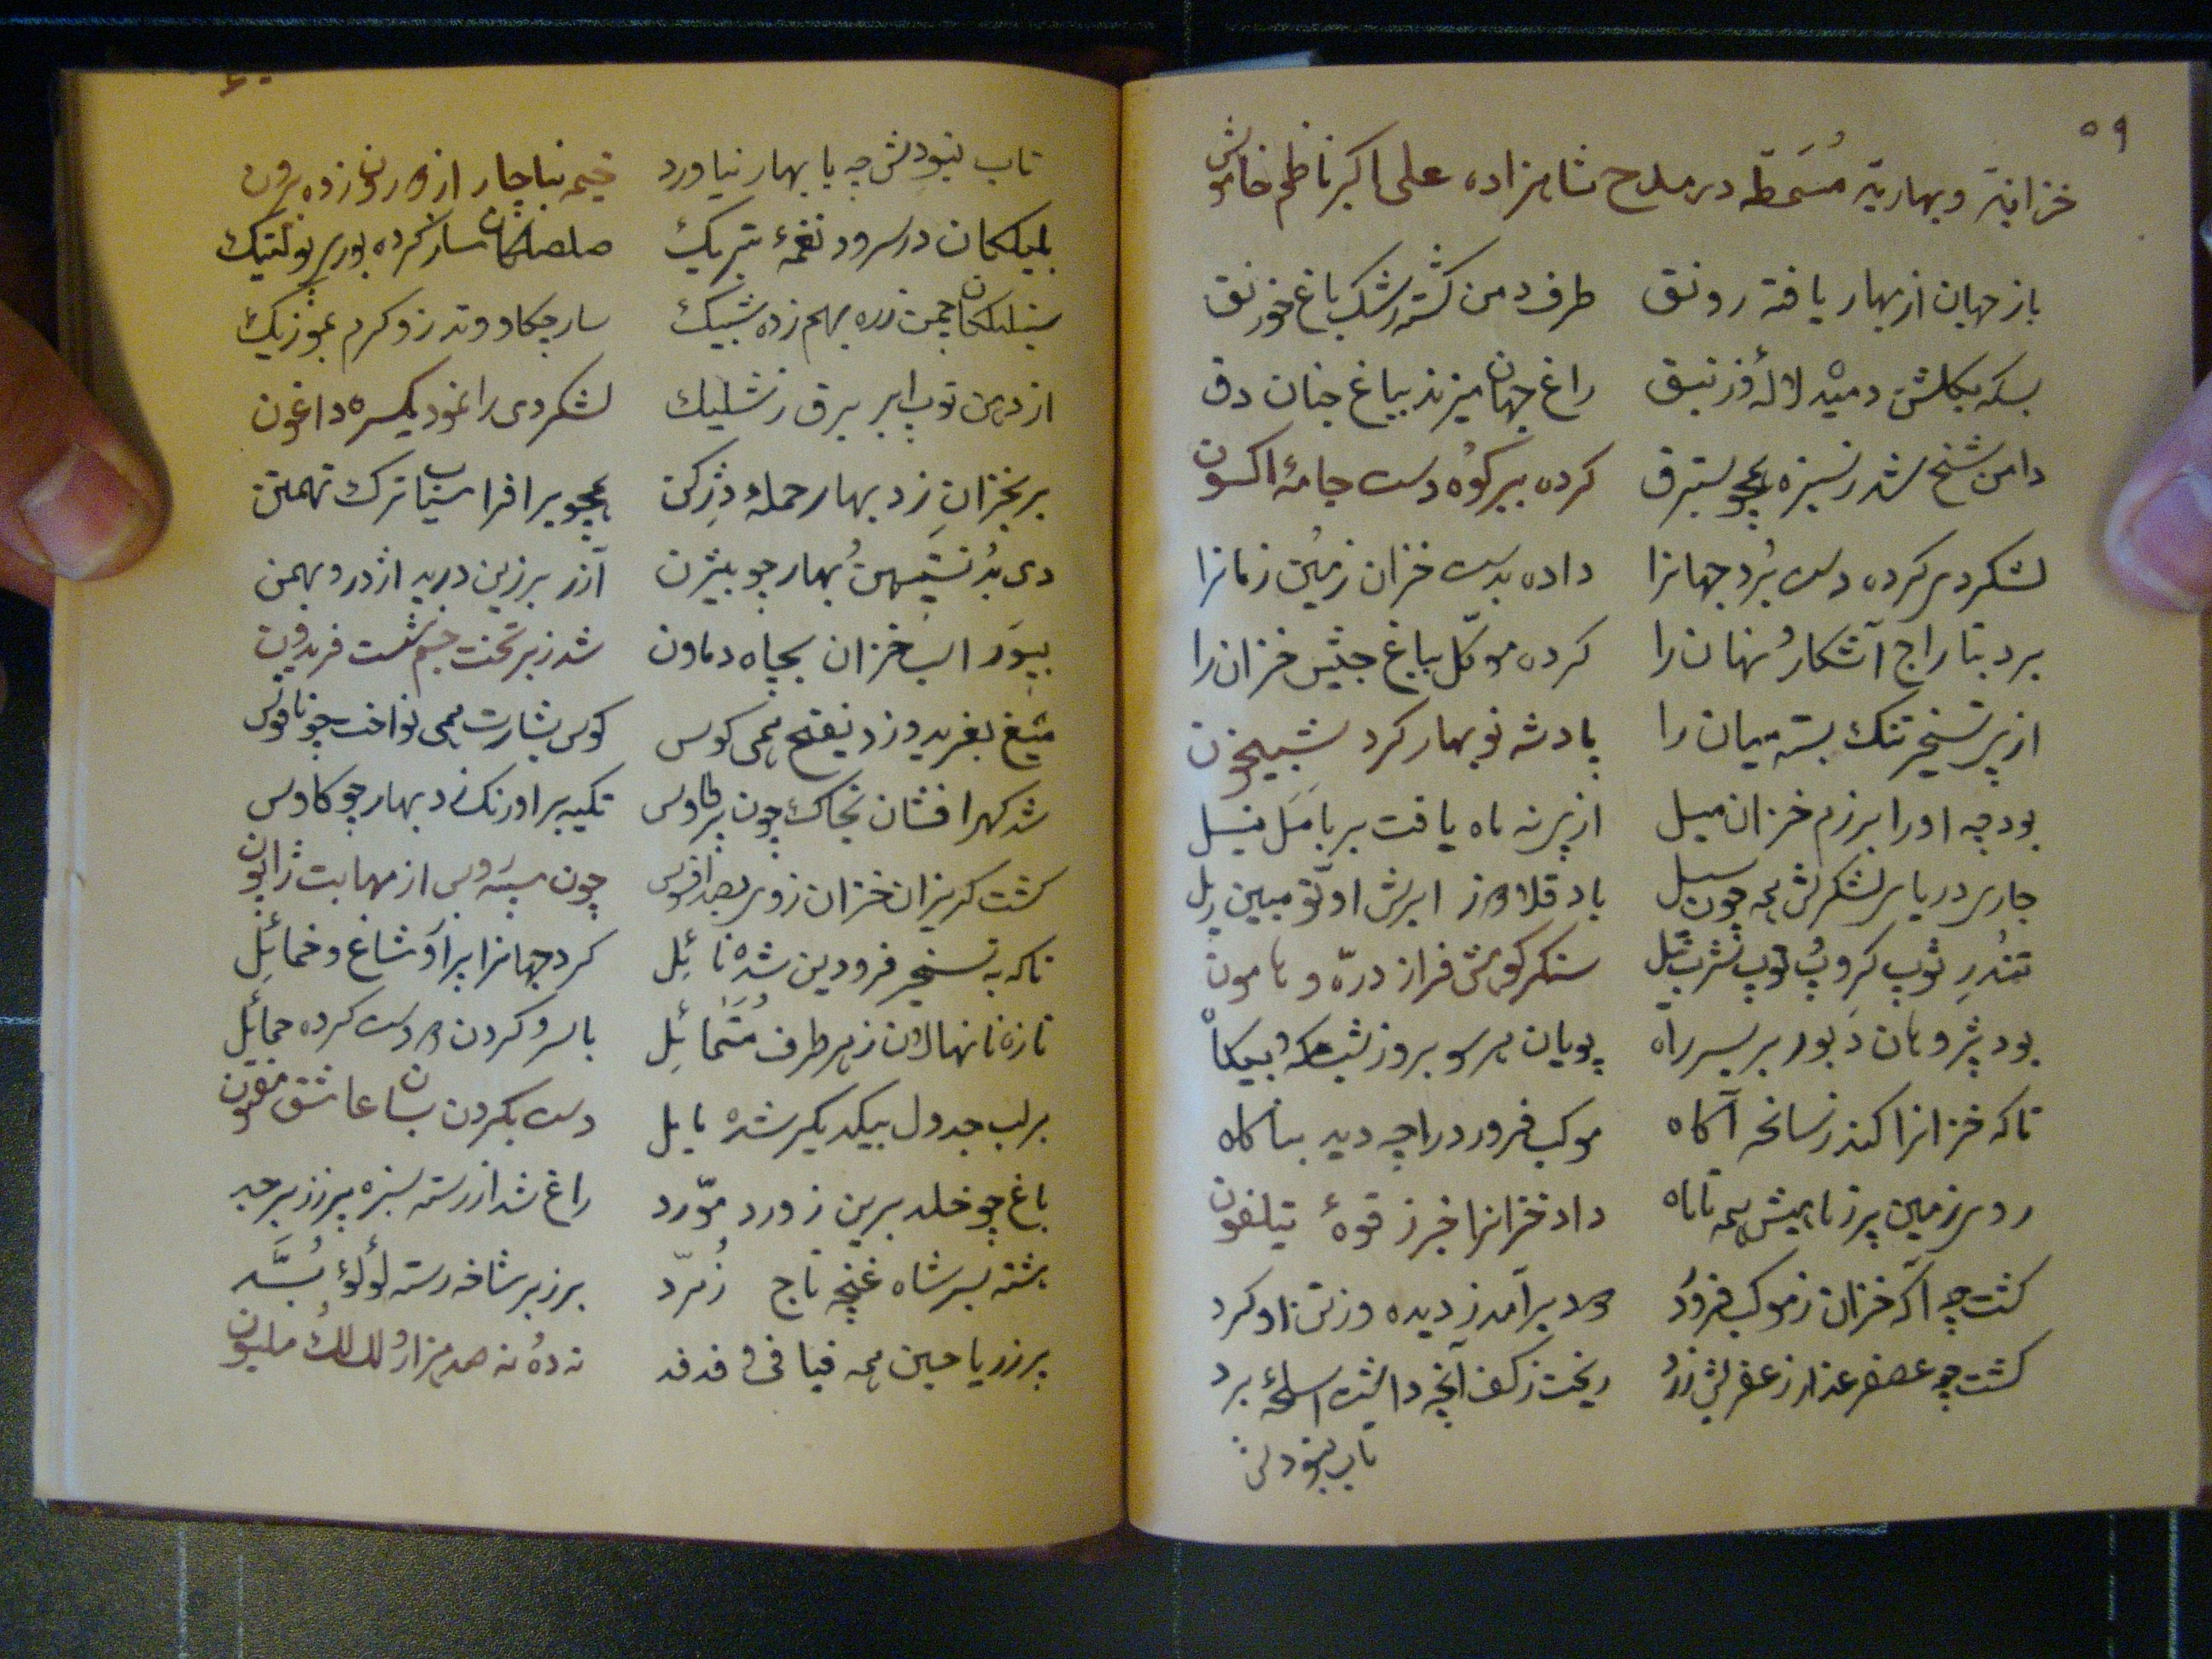 ۵۹
خزانیه و بهاریه مُسَمّطه در مدح شاهزاده علی اکبر ناظم خاموش
باز جهان از بهار یافته رونق طرف دمن گشته رشک باغ خورنق
بسکه بگلشن دمیده لاله و زنبق راغ جهان میزند بباغ جنان دق
دامن شخ شد ز سبزه همچو ستبرق کرده ببر کوه و دست جامهٔ اکسون
لشکر دی کرده دست بُرد جهانرا داده بدست خزان زمین زمانرا
برد بتاراج آشکار و نهان را کرده موکّل بباغ جیش خزان را
از پی تسخیر تنگ بسته میان را پادشه نو بهار کرد شبیخون
بود چه او را برزم خزان میل از پی نه ماه یافت بر بامَل نیل
جاری در پای لشکرش همه چون سیل باد قلاوز ابرش اوتومبین ریل
تندُر توپ کروپُ توپ شربنل سنگر کوهش فراز درّه و هامون
بود پژوهان دَبور بر بسر راه پویان هر سو بروز شب که و بیگاه
تا که خزانرا کند ز سانحه آگاه موکب فرورد را چه دید بناگاه
روی زمین پر ز تا بیش همه تا ماه داد خزانرا خبر ز قوهٔ تیلفون
گشت چه آگه خزان ز موکب فرورد دود برآمد ز دیده وز تن او گرد
گشت چه عصفر عذار زعفریش زرد ریخت ز کف آنچه داشت اسلحهٔ برد
تاب نبودش
۶۰
تاب نبودش چه با بهار نیاورد خیمه بناچار از زده بیرون
بلبلکان در سرود نغمهٔ تبریک صلصلکان ساز کرده بوری بولتیک
سنبلکان چمن زره بهم زده شبیک سار چکاو و تذرو گرم بموزیک
از دهن توپ ابر برق ز شلیک لشکر دی را نمود یکسره داغون
بر بخزانِ زد بهار حمله دِژکن همچو بر افراسیاب ترک تهمتن
دی بُد نستیهن بُهار چو بیژن آذر برزین درید اژدر و بهمن
بیوَر اسب خزان بچاه دماون شد ز بر تخت جم نشست فریدون
میغ بغرید و زد نفتح همی کوس کوس بشارت همی نواخت چو ناقوس
شد گهر افشان بخاک چون پر طاوس تکیه بر اورنگ زد بهار چو کاوس
گشت گریزان خزان ز وی بصد افسوس چون سپه روس از مهابت ژاپون
تا که به تسخیر فرودین شده نائِل کرد جهانرا پر آو شاغ و خمائِل
تازه نهالان ز هر طرف مُتَمائِل با سر و گردن دو دست کرده حمائِل
بر لب جدول بیکدیگر شده مایل دست بگردن بسان عاشق مفتون
باغ چو خلد برین ز ورد مورّد راغ شد از رسته سبزه پر ز زبرجد
هشته بسر شاه غنچه تاج زُمرّد بر ز بر شاخه رسته لُولُو بُسَّد
پر ز ریاحین همه فیافی و فدفد نه ده نه صد هزار لک لک ملیون